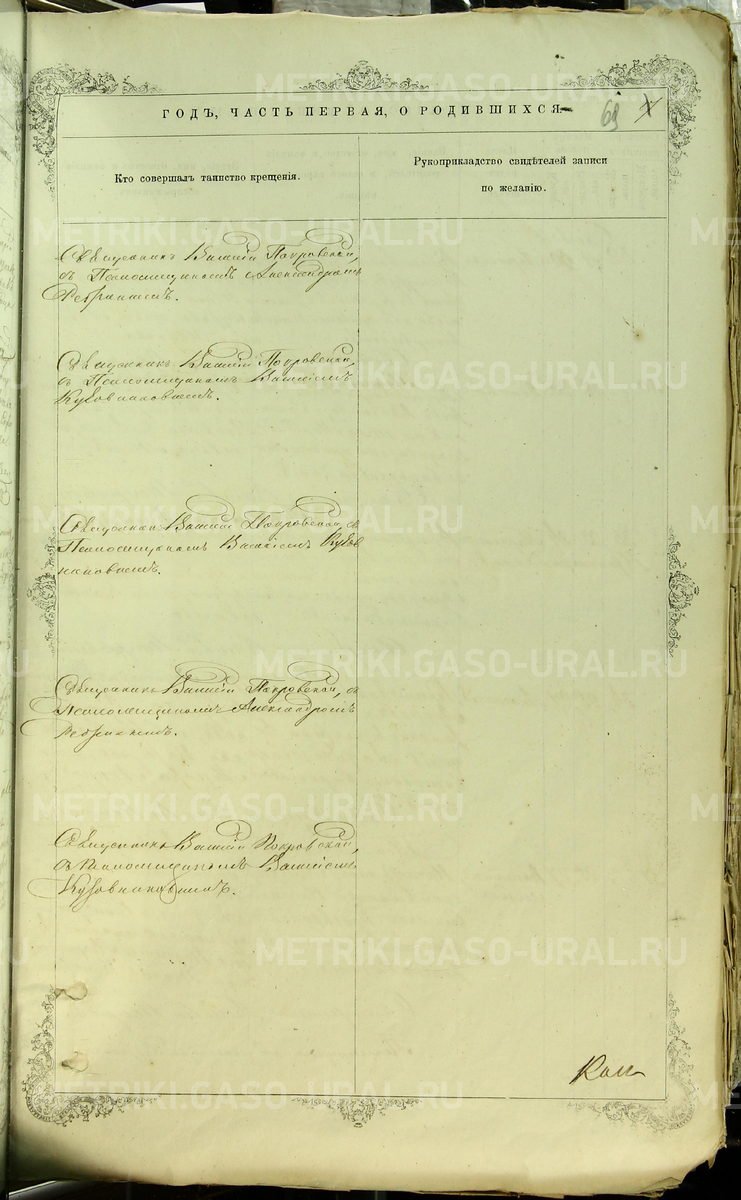 ГОДЪ, ЧАСТЬ ПЕРВАЯ, О РОДИВШИХСЯ 69
Кто совершалъ таинство крещенія.
Рукоприкладство свидѣтелей записи
по желанію.
Священникъ Василій Покровскій,
съ Псаломщикомъ Александромъ
Священникъ Василій Покровскій,
съ Псаломщикомъ Василіемъ
Кузовниковымъ.
Священникъ Василій Покровскій, съ
Псаломщикомъ Василіемъ Кузов
никовымъ.
Священникъ Василій Покровскій, съ
Псаломщикомъ Александромъ
Священникъ Василій Покровскій,
съ Псаломщикомъ Василіемъ
Кузовниковымъ.
METRIKI.GASO-URAL.RU